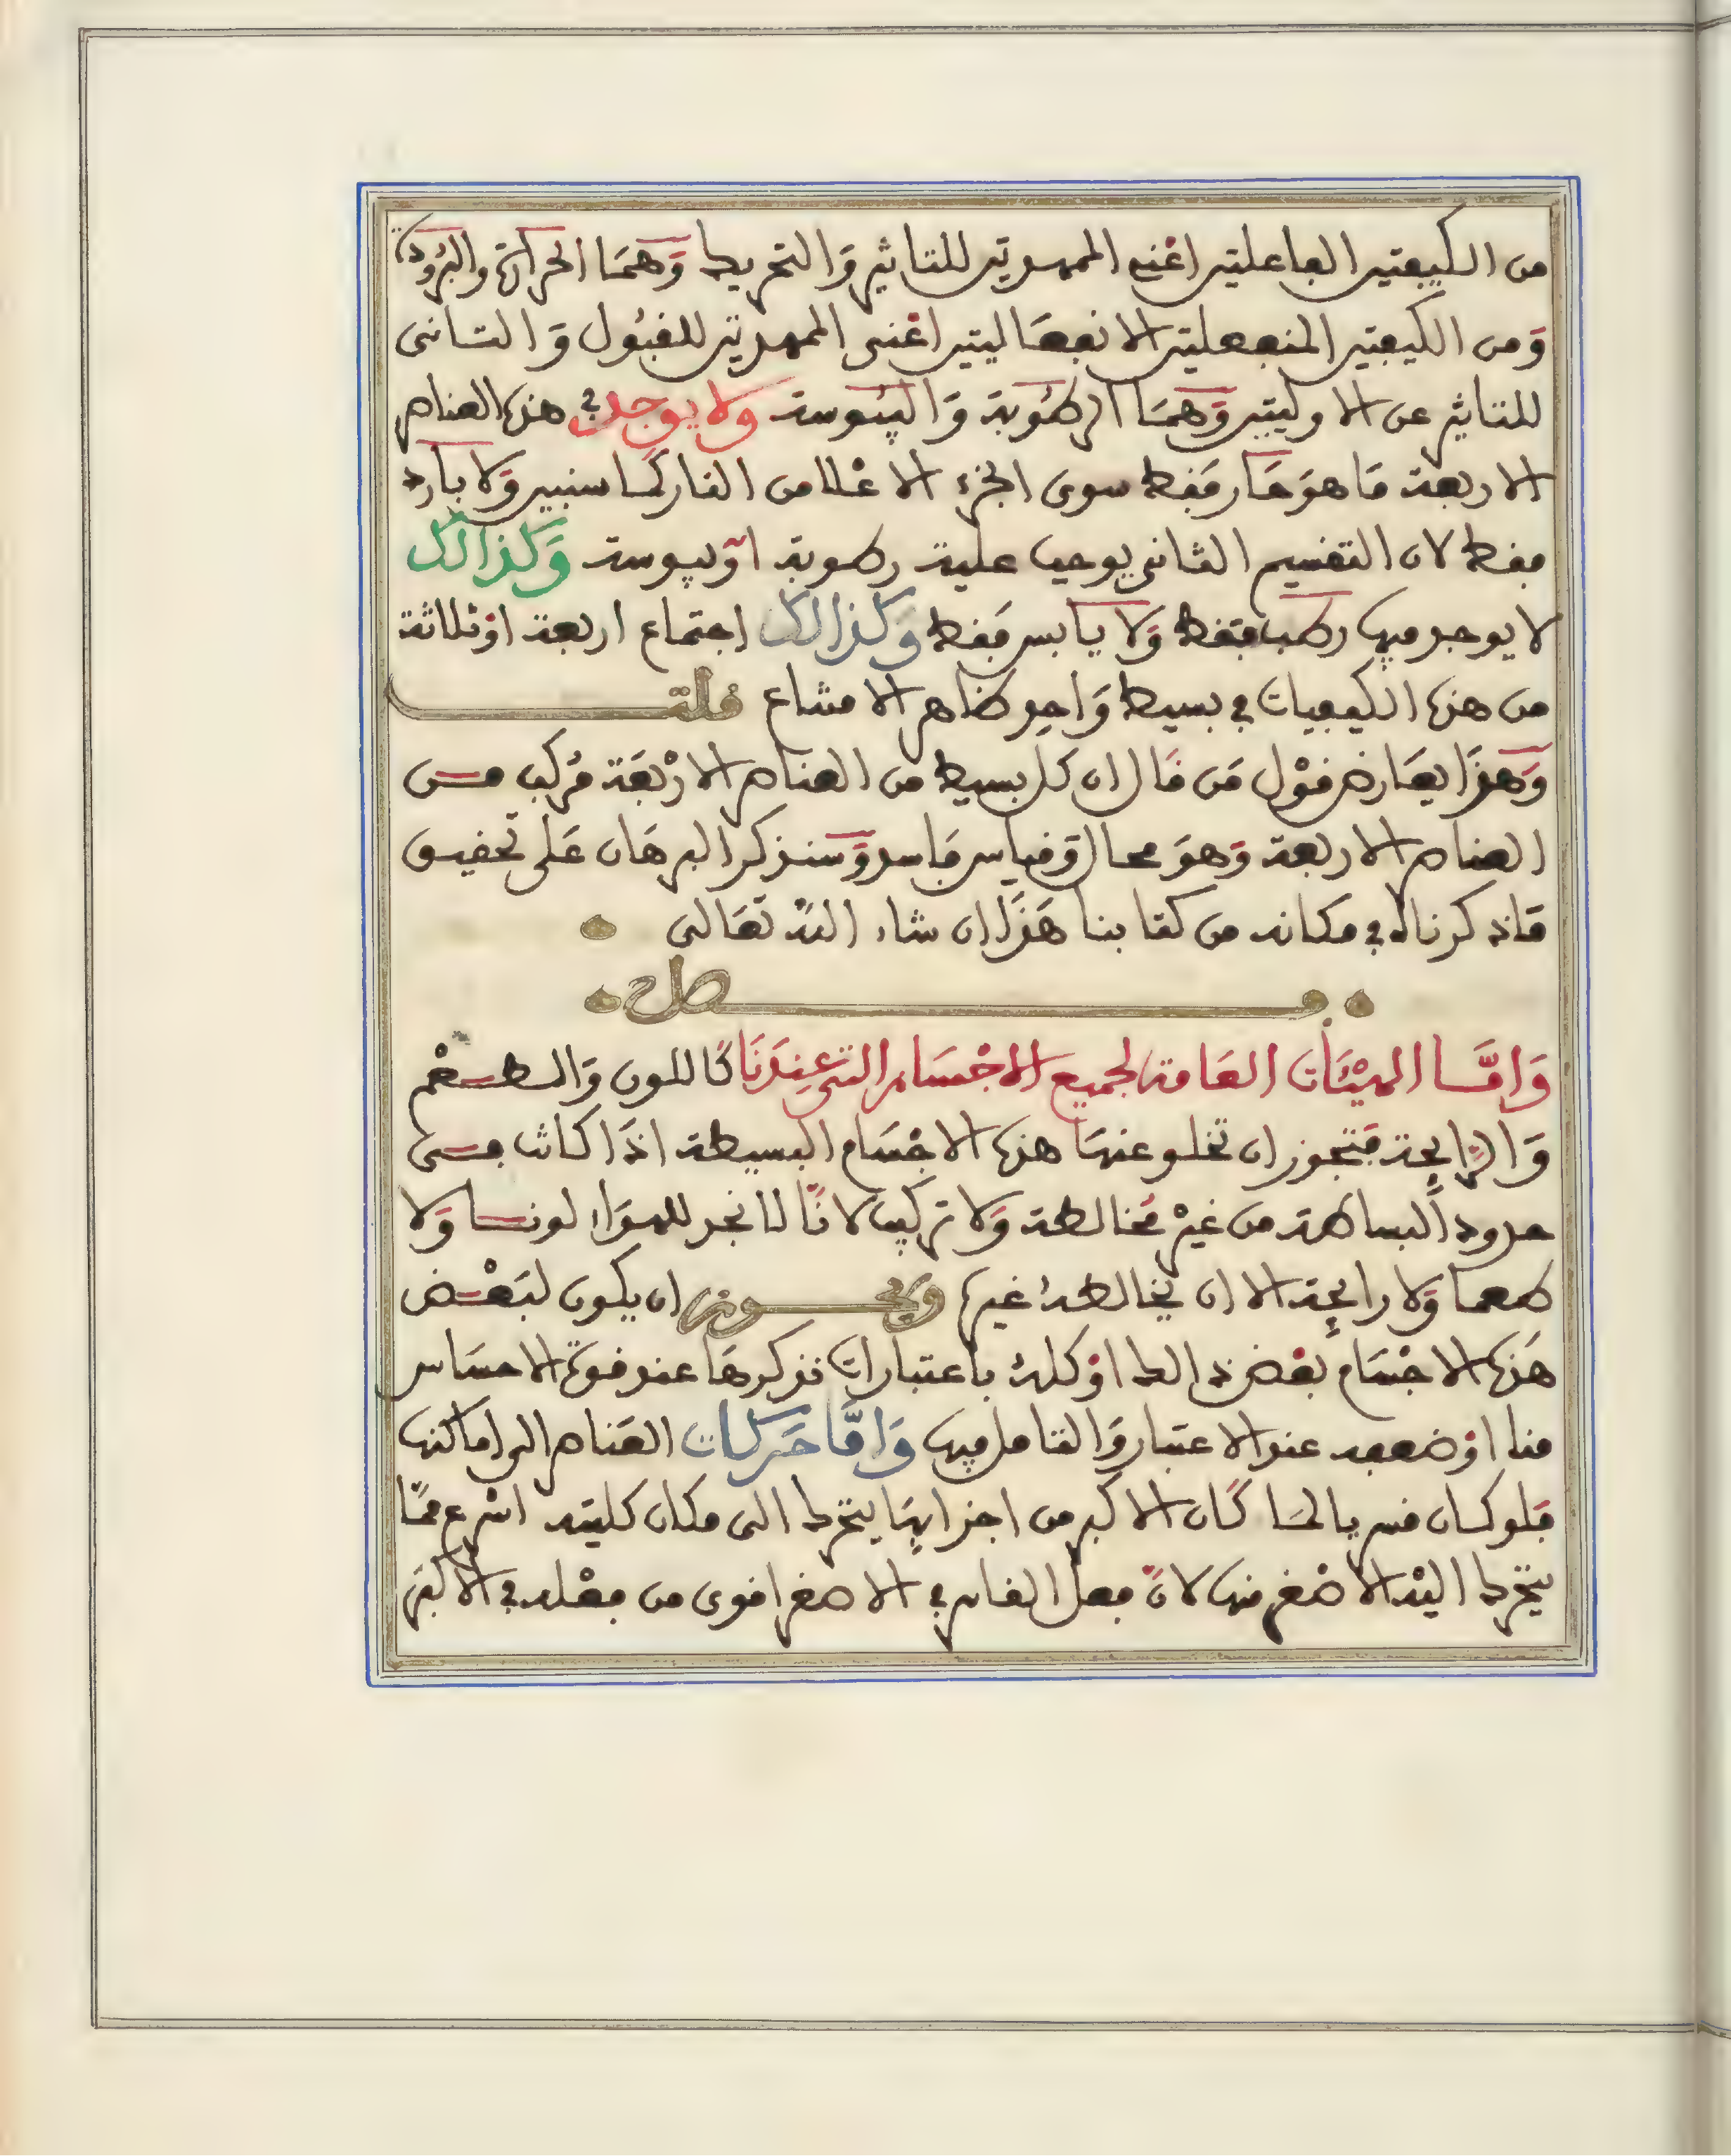 من الكيفيتين الفاعلتين اعْنى الممهدتين للتاثير وَالتحريك وَهمَا الحرارة والبرُودة
وَمن الكيفيتين المنفعلتين الانفعَاليتين اعْنى الممهدتين للقبُول وَالتـانى
للتاثير عن الاوليتين وَهمَا الرطُوبة وَاليبُوسة ولا يوجد في هذه العناصر
الاربعة مَا هوَ حَار فَقط سوى الجزء الاعْلا من النار كمـا سنبين وَلا بَارد
فقط لان التقسيم الثانى يوجب عليه رطوبة اوْ يبوسة وَكذالك
لا يوجد فيها رطب فقط وَلا يَابس فقط وكذالك اجتماع اربعة اوْ ثلاثة
من هذه الكيفيات في بسيط وَاحد ظاهر الامتناع قلتـــ
وَهذَا يعَارض قوْل مَن قَال ان كل بسيط من العناصر الارْبعَة مُركب مــن
العناصر الاربعة وَهوَ محال وَقياس فَاسد وَسنـذكر البرهَان عَلى تحقيـق
مَا ذكرناه في مكانه من كتابنا هَذَا ان شاء اللهُ تعَالى
فـــــصل
وَامَّــا الهيْئَات العَامة لجميع الاجْسَام التى عِندَنَا كَاللون وَالطــعْم
وَالرَايحة فَتجوز ان تخلو عنهَا هذه الاجْسَام البسيطة اذَا كانت فــى
حدود البساطة من غيْر مُخالطة وَلا تركيب لانّا لا نجد للهوَاء لونــا وَلا
طعما وَلا رايحة الا ان يخالطهُ غيرها وَيجــوز ان يكون لبَعْــض
هَذه الاجْسَام بَعْض ذالك اوْ كلهُ باعتبارات نذكرهَا عند قوة الاحسَاس
منا اوْ ضعفه عند الاعتبار وَالتامل فيها وَامَّا حَركات العَناصر الى اماكنها
فَلو كـان قسريا لمَـا كَان الاكبر من اجزايهَا يتحرك الى مكان كليته اسْرع ممّا
يتحرك اليْه الاصْغر منها لانّ فعل القاسر في الاصغر اقوى من فعْله في الاكبَر